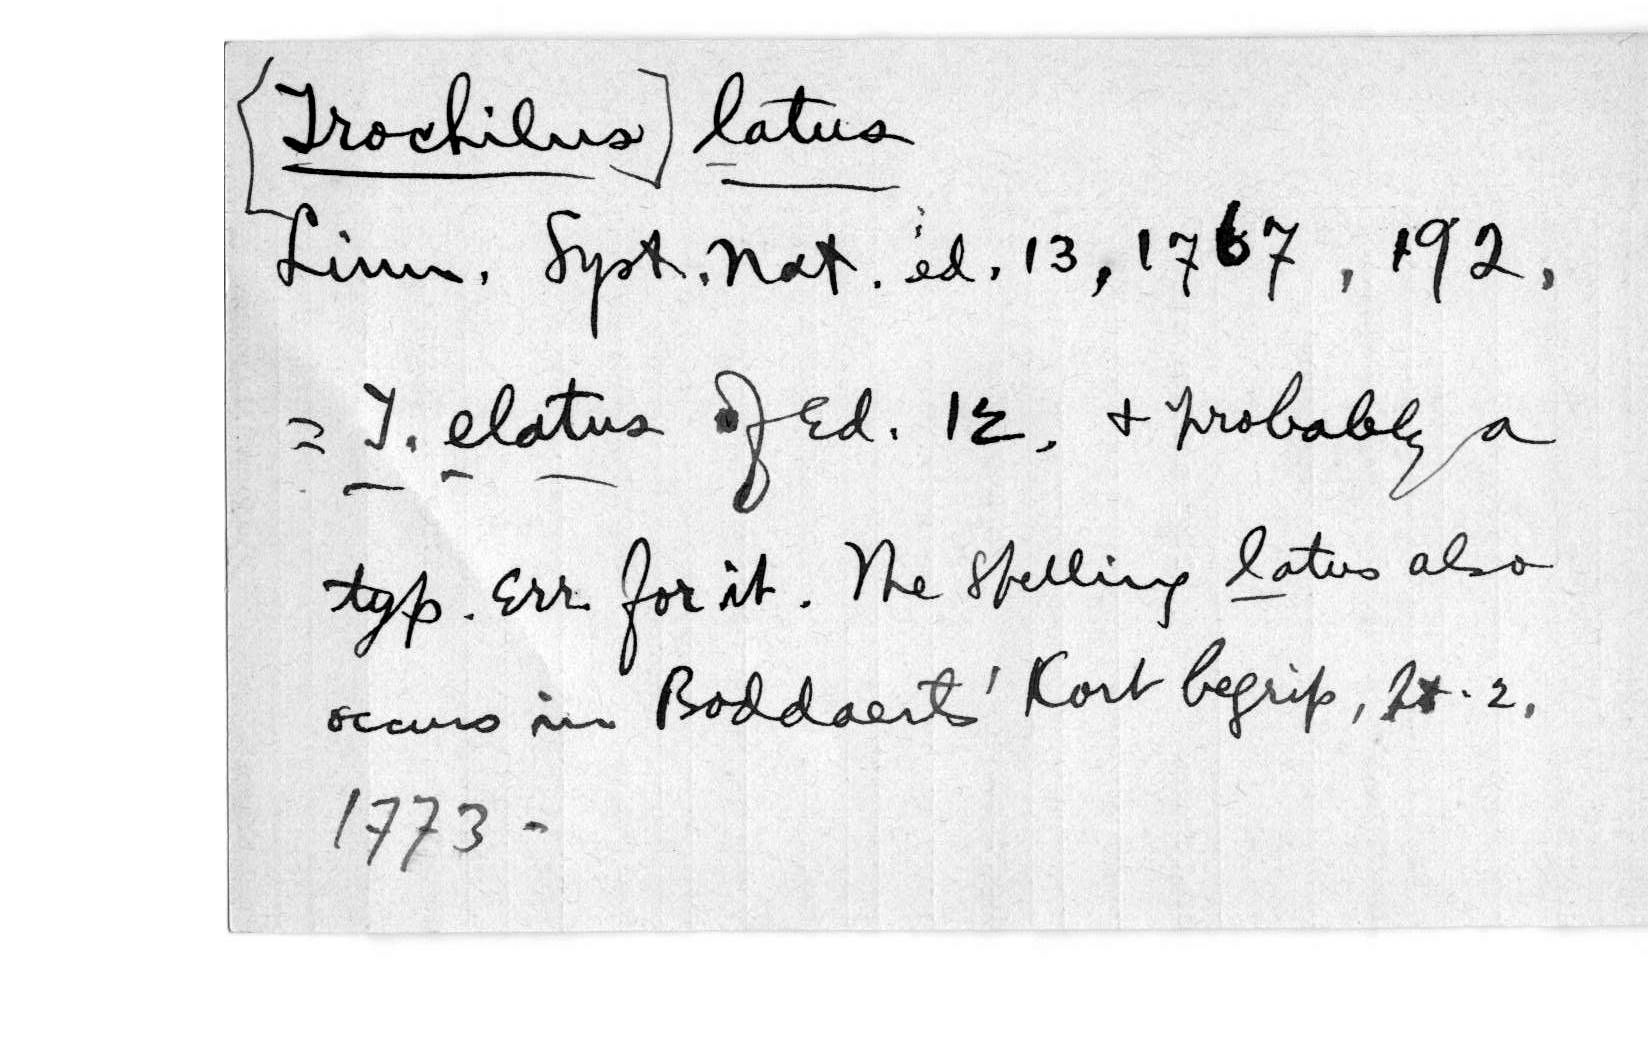 [Trochilus] latus
Linn. Syst. Nat. ed. 13, 1767, 192,
= T. elatus of Ed. 12, + probably a
typ. Err. for it. The spelling latus also
occurs in Boddaerts' Kort begrip, pt. 2,
1773-